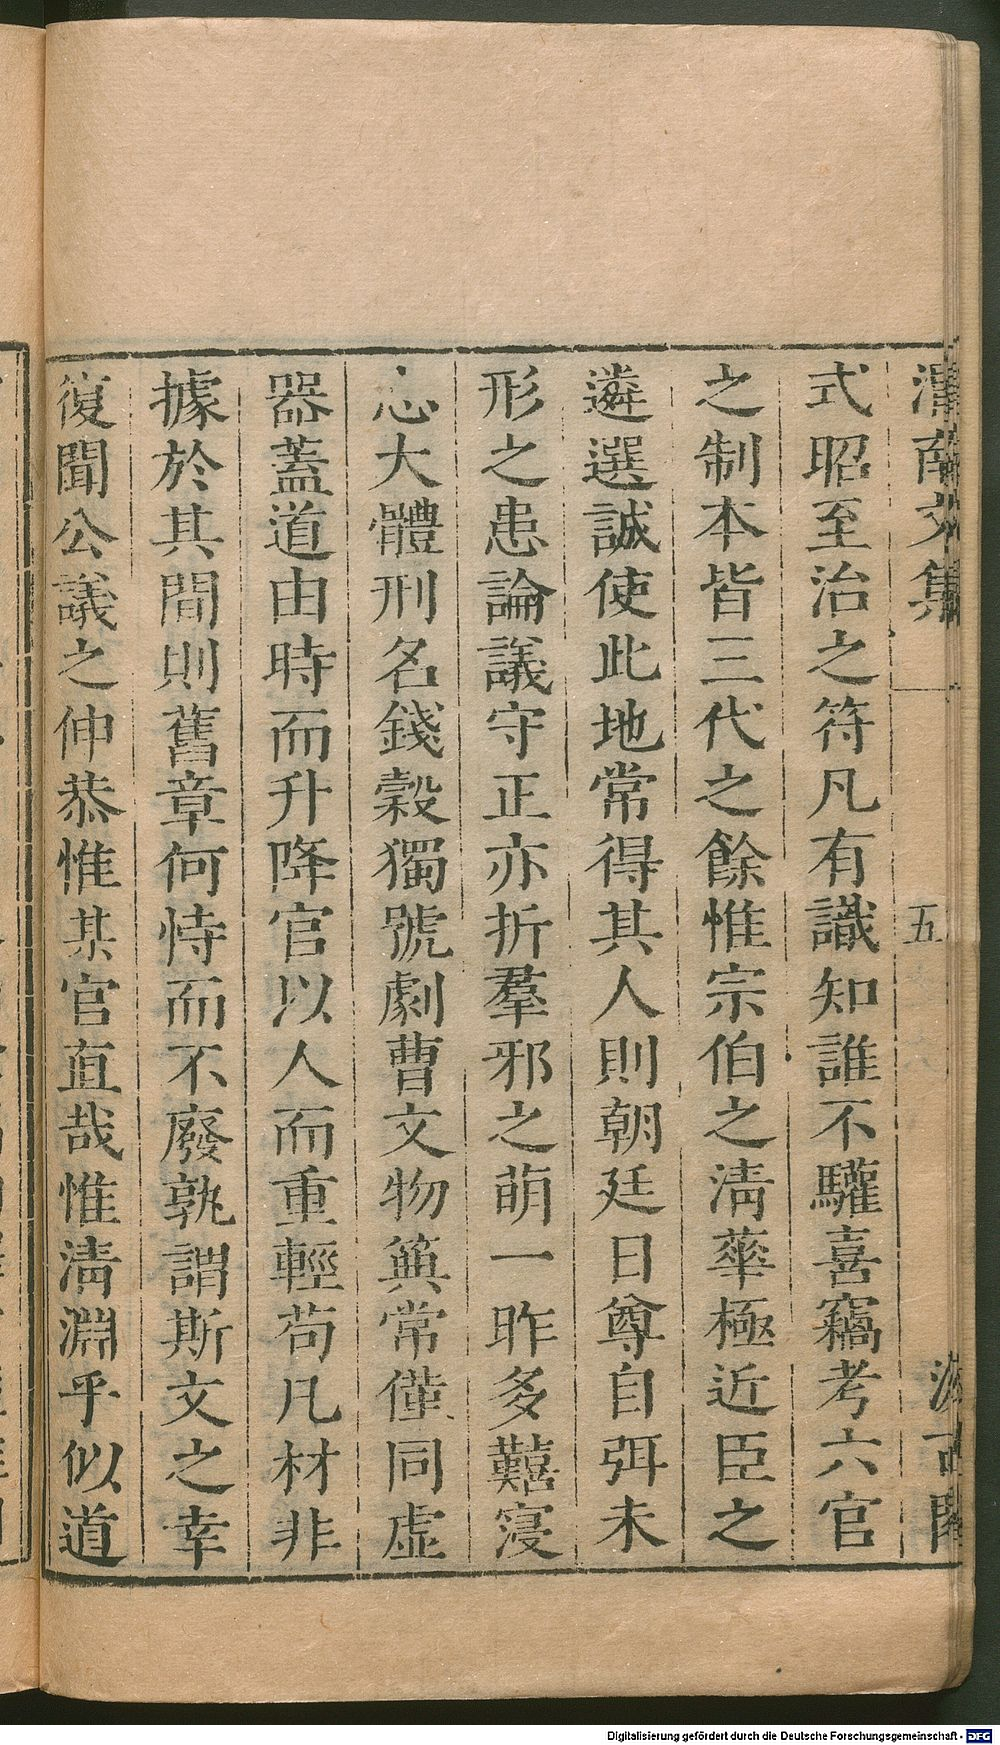 渭南文集
五
汲古閣
式昭至治之符凡有識知誰不驩喜竊考六官
之制本皆三代之餘惟宗伯之淸華極近臣之
遴選誠使此地常得其人則朝廷日尊自弭未
形之患論議守正亦折羣邪之萌一昨多囏寖
忘大體刑名錢穀獨號劇曹文物篾常僅同虛
器蓋道由時而升降官以人而重輕苟凡材非
據於其間則舊章何恃而不廢孰謂斯文之幸
復聞公議之伸恭惟某官直哉惟淸淵乎似道
Digitalisierung gefördert durch die Deutsche Forschungsgemeinschaft - DFG